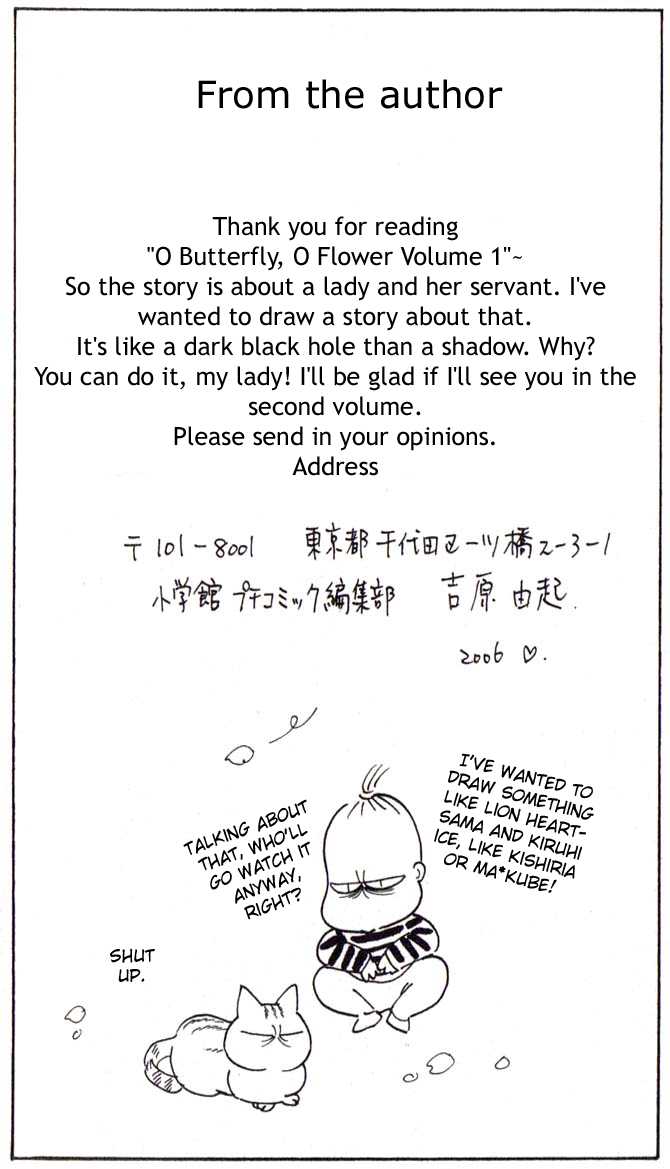 From the author
Thank you for reading
"O Butterfly, O Flower Volume 1"~
So the story is about a lady and her servant. I've
wanted to draw a story about that.
It's like a dark black hole than a shadow. Why?
You can do it, my lady! I'll be glad if I'll see you in the
second volume.
Please send in your opinions.
Address
〒101-8001 東京都千代田区一ツ橋2-3-1
小学館 プチコミック編集部 吉原由起.
2006 ♡.
I'VE WANTED TO
DRAW SOMETHING
LIKE LION HEART-
SAMA AND KIRUHI
ICE, LIKE KISHIRIA
OR MA*KUBE!
TALKING ABOUT
THAT, WHO'LL
GO WATCH IT
ANYWAY,
RIGHT?
SHUT
UP.